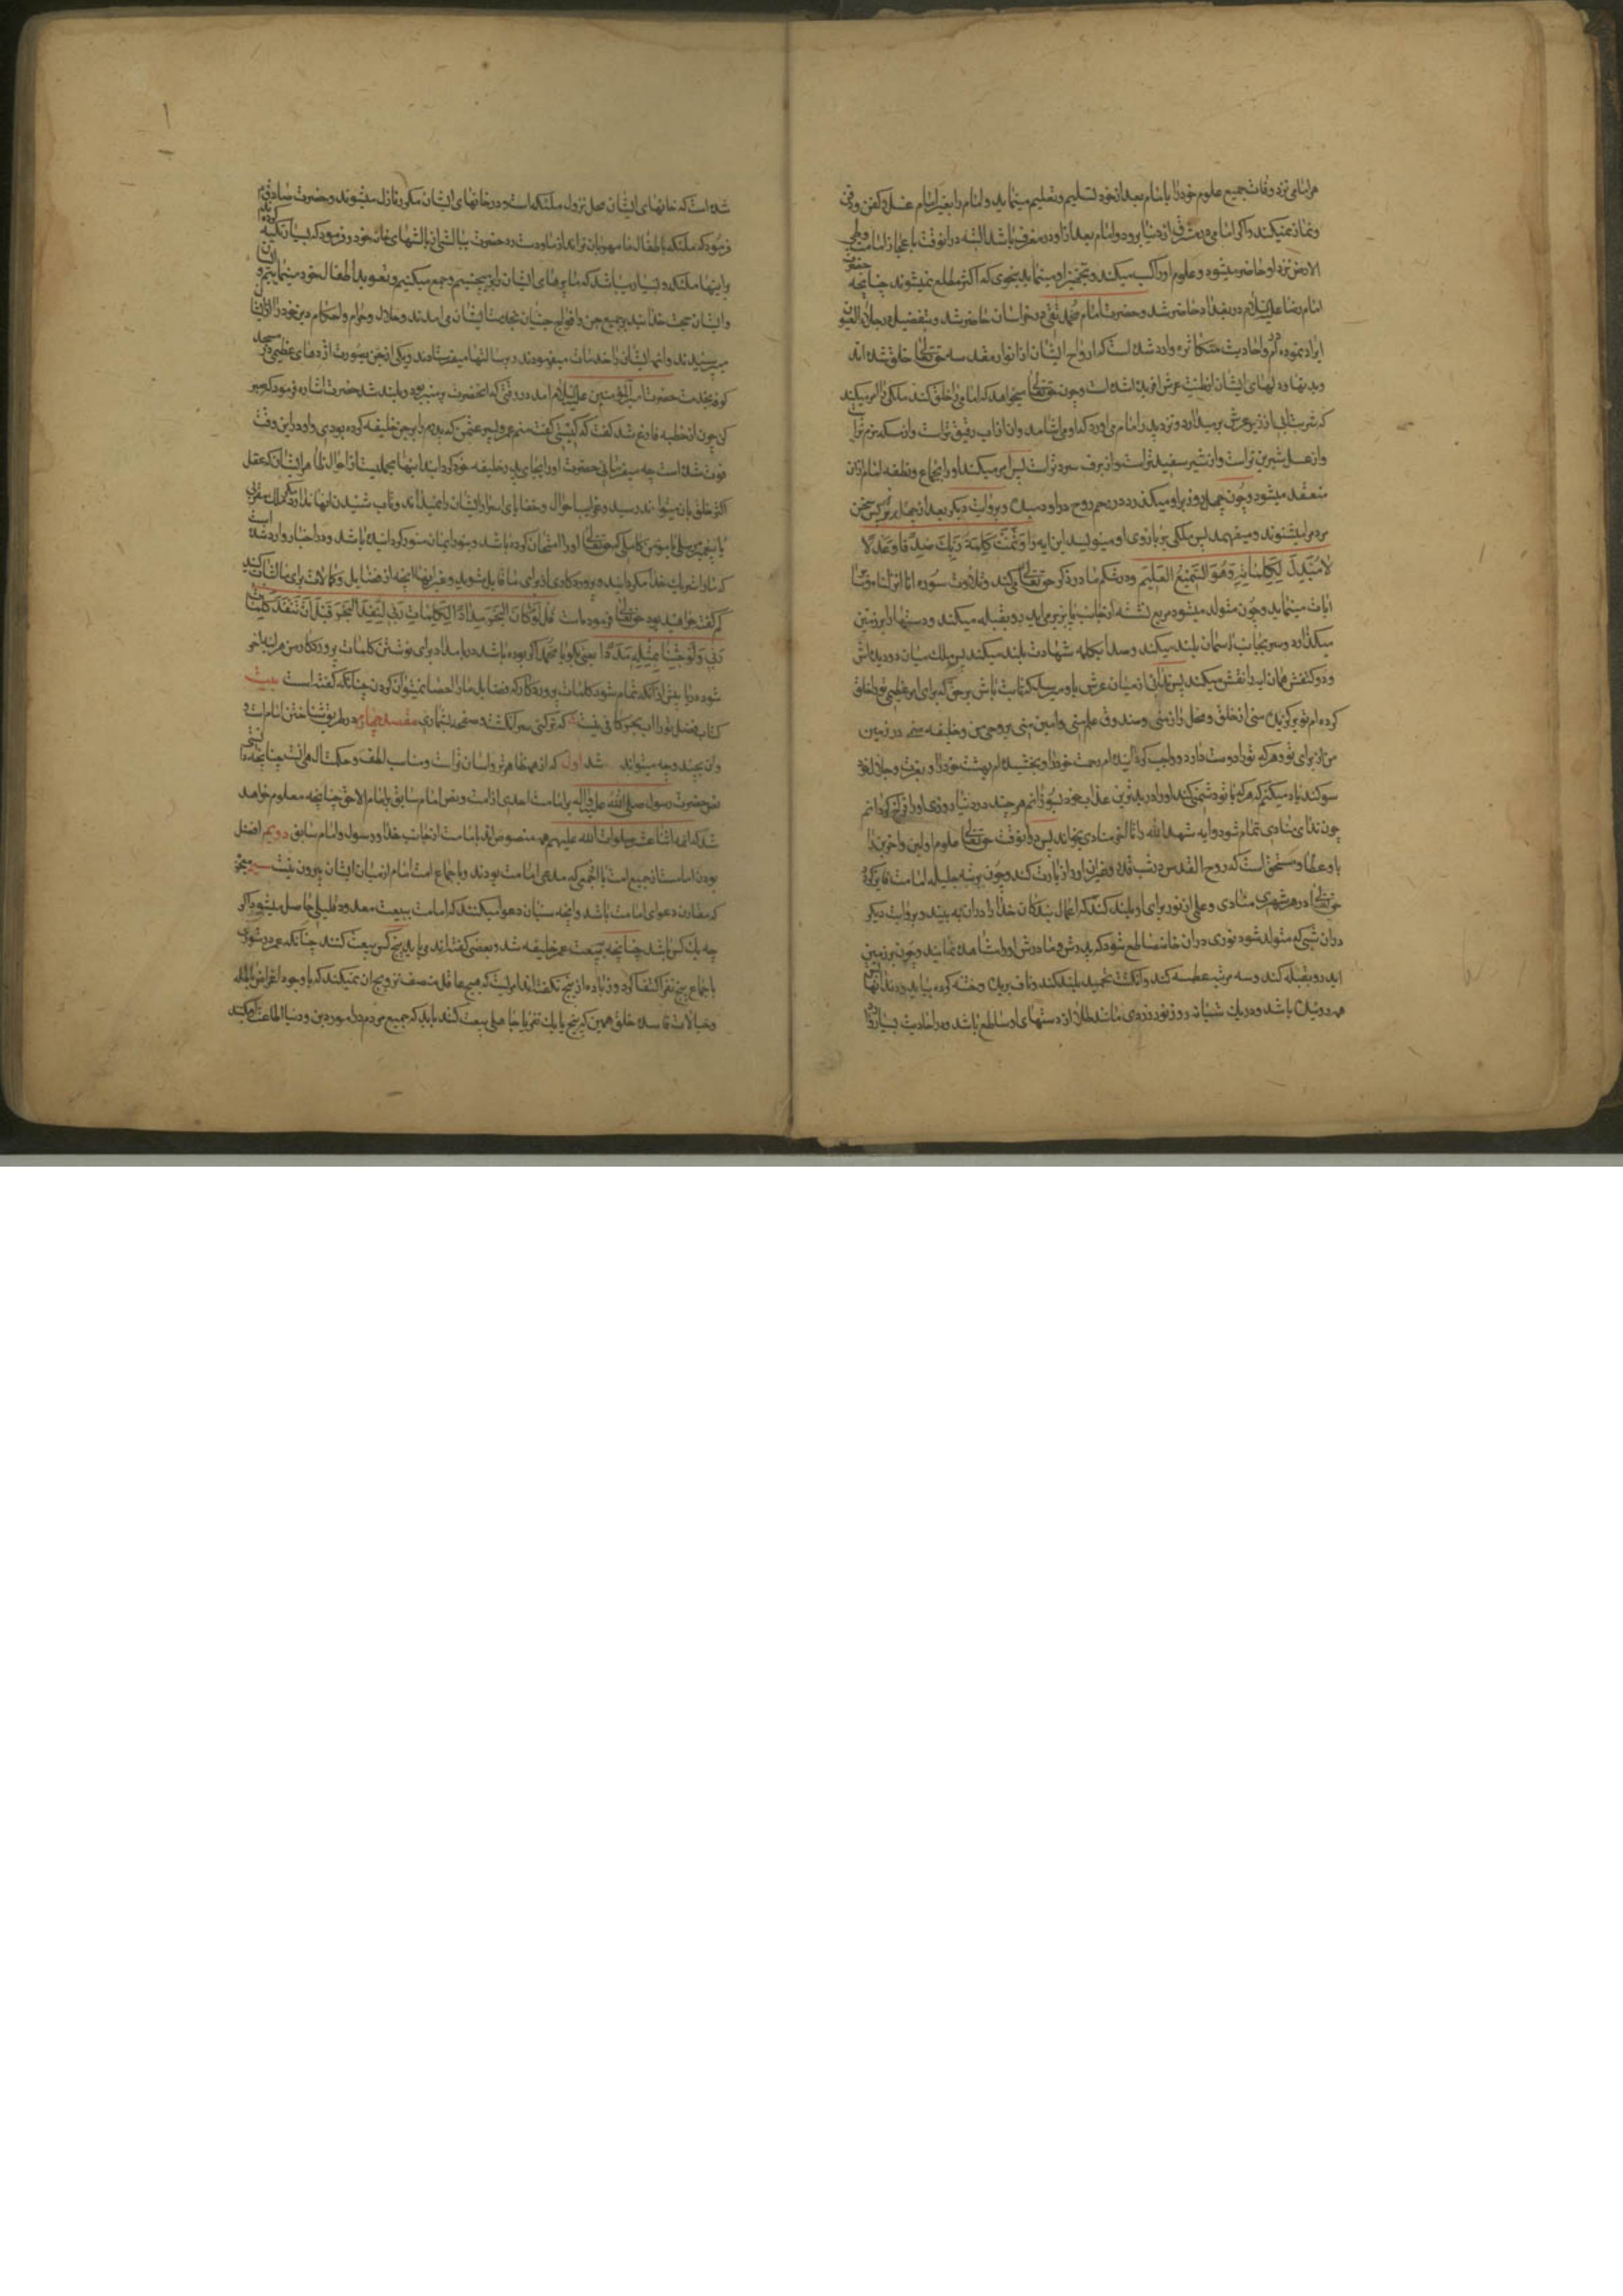 هر امامی نزد وفات جمیع علوم خود را بامام بعد از خود تسلیم و تعلیم مینماید و امام را بغیر امام غسل و کفن و دفن
و نماز نمیکند و اگر امامی در مشرق از دنیا برود و امام بعد از او در مغرب باشد البته در آنوقت باعجاز امامت و طی
الارض نزد او حاضر میشود و علوم او را کسب میکند و تجهیز او مینماید بنحوی که اکثر مطلع نمیشوند چنانچه حضرت
امام رضا علیه السلام در بغداد حاضر شد و حضرت امام محمد تقی در خراسان حاضر شد و تفصیل در جلاء العیون
ایراد نموده ام و احادیث متکاثره وارد شده است که ارواح ایشان از انوار مقدسه حق تعالی خلق شده اند
و بدنها و دلهای ایشان از طینت عرش آفریده شده است و چون حق تعالی میخواهد که امامی را خلق کند ملکی را امر میکند
که شربت آبی از زیر عرش بر میدارد و نزد پدر امام می آورد که او می آشامد و آن از آب رقیق تر است و از مسکه نرم تر است
و از عسل شیرین تر است و از شیر سفیدتر است و از برف سردتر است پس امر میکند او را بجماع و نطفه امام از آن
منعقد میشود و چون چهل روز بر او میگذرد در رحم روح در او دمیده و بروایت دیگر بعد از چهار ماه پس سخن
مردم را میشنود و میفهمد پس ملکی بر بازوی او مینویسد این آیه را وَتَمَّتْ كَلِمَةُ رَبِّكَ صِدْقًا وَعَدْلًا
لَا مُبَدِّلَ لِكَلِمَاتِهِ وَهُوَ السَّمِيعُ الْعَلِيمُ و در شکم مادر ذکر حق تعالی میکند و تلاوت سوره انا انزلناه و سایر
آیات مینماید و چون متولد میشود مربع نشسته از جانب پا بزیر می آید و رو بقبله میکند و دستها را بر زمین
میگذارد و سر بجانب آسمان بلند میکند و صدا بکلمه شهادت بلند میکند پس ملک میان دو دیده اش
و دو کتفش همان آیه را نقش میکند پس ندائی از میان عرش باو میرسد که ثابت باش بر حق که برای امر عظیمی تو را خلق
کرده ام تو برگزیده منی از خلق و محل راز منی و صندوق علم منی و امین منی بر وحی من و خلیفه منی در زمین
من از برای تو و هر که تو را دوست دارد واجب کرده ام رحمت خود را و بخشیده ام بهشت خود را و بعزت و جلال خود
سوگند یاد میکنم که هر که با تو دشمنی کند او را در بدترین عذاب خود بسوزانم هر چند در دنیا روزی او را فراخ گردانم
چون ندای منادی تمام شود و آیه شهد الله را تا آخر منادی بخواند پس در آنوقت حق تعالی علوم اولین و آخرین را
باو عطا و مستحق است که روح القدس در شب قدر و غیر آن او را زیارت کند و چون برتبه جلیله امامت فایز گردد
حق تعالی در هر شهری منادی و علمی از نور برای او بلند کند که اعمال بندگان خدا را در آن به بیند و بروایت دیگر
در آن شبی که متولد شود نوری در آن خانه ساطع شود که پدرش و مادرش او را مشاهده نمایند و چون بر زمین
آید رو بقبله کند و سه مرتبه عطسه کند و انگشت بتحمید بلند کند و ناف بریده و ختنه کرده بیاید و دندانها
همه روئیده باشد و در یک شبانه روز نور زردی مانند طلا از دستهای او ساطع باشد و در احادیث بسیار وارد
شده است که خانهای ایشان محل نزول ملئکه است و در خانهای ایشان مکرر نازل میشوند و حضرت صادق ع
فرمود که ملئکه باطفال ما مهربان تراند از ما و دست زد حضرت ببالشی از بالشهای خانه خود و فرمود که بسیار تکیه کرده اند
بر اینها ملئکه و بسیار میباشد که ما پرهای ایشان را برمیچینیم و جمع میکنیم و تعویذ اطفال خود مینمائیم
و ایشان حجت خدایند بر جمیع جن و افواج جنیان بخدمت ایشان می آمدند و حلال و حرام و احکام دین خود را از ایشان
میپرسیدند و ائمه ایشان را خدمات میفرمودند و برسالتها میفرستادند و یکی از جن بصورت اژدهای عظیمی در مسجد
کوفه بخدمت حضرت امیر المؤمنین علیه السلام آمد در وقتی که آنحضرت بر منبر بود و بلند شد حضرت اشاره فرمود که صبر
کن چون از خطبه فارغ شد گفت که کیستی گفت منم عمرو پسر عثمن که پدرم را بر جن خلیفه کرده بودی و او در این وقت
فوت شده است چه میفرمائی حضرت او را بجای پدر خلیفه خود گردانید اینها مجملیست از احوال ظاهر ایشان که عقل
اکثر خلق بآن میتواند رسید و غرایب احوال و خفایای اسرار ایشان را نمیدانند و تاب شنیدن آنها ندارد مگر ملک مقربی
یا پیغمبر مرسلی یا مؤمن کاملی که حق تعالی او را امتحان کرده باشد و بنور ایمان منور گردانیده باشد و در اخبار وارد شده است
که ما را شریک خدا مگردانید و پروردگاری از برای ما قایل شوید و غیر اینها آنچه از فضایل و کمالات برای ما اثبات کنید
کم گفته خواهید بود حق تعالی فرموده است قُلْ لَوْ كَانَ الْبَحْرُ مِدَادًا لِكَلِمَاتِ رَبِّي لَنَفِدَ الْبَحْرُ قَبْلَ أَنْ تَنْفَدَ كَلِمَاتُ
رَبِّي وَلَوْ جِئْنَا بِمِثْلِهِ مَدَدًا یعنی بگو یا محمد اگر بوده باشد دریا مداد برای نوشتن کلمات پروردگار من هر آینه آخر
شود دریا پیش از آنکه تمام شود کلمات پروردگار که فضایل ما را احصا نمیتوان کردن چنانکه گفته است بیت
کتاب فضل تو را آب بحر کافی نیست که تر کنی سر انگشت و صفحه بشماری مقصد چهارم در طریق شناختن امام است و
و آن بچند وجه میتواند شد اول که از همه ظاهرتر و آسان تر است و مناسب لطف و حکمت الهی است چنانچه دانستی
نص حضرت رسول صلی الله علیه و آله بر امامت احدی از امت و نص امام سابق بر امام لاحق چنانچه معلوم خواهد
شد که ائمه اثنا عشر صلوات الله علیهم همه منصوص اند بامامت از جانب خدا و رسول و امام سابق دویم افضل
بودن امامست از جمیع امت یا جمعی که مدعی امامت بودند و باجماع امت امام از میان ایشان بیرون نیست سیم معجزه
که مقارن دعوای امامت باشد و آنچه سنیان دعوا میکنند که امامت ببیعت معدود قلیلی حاصل میشود اگر
چه یک کس باشد چنانچه ببیعت عمر خلیفه شد و بعضی گفته اند می باید پنج کس بیعت کنند چنانکه عمر در شوری
باجماع پنج نفر اکتفا کرد و زیاده از پنج نگفته اند امریست که هیچ عاقل منصف تجویز آن نمیکند که با وجود اغراض باطله
و خیالات فاسده خلق همین که پنج یا یک نفر با جاهلی بیعت کنند باید که جمیع مردم در امور دین و دنیا اطاعت او کنند